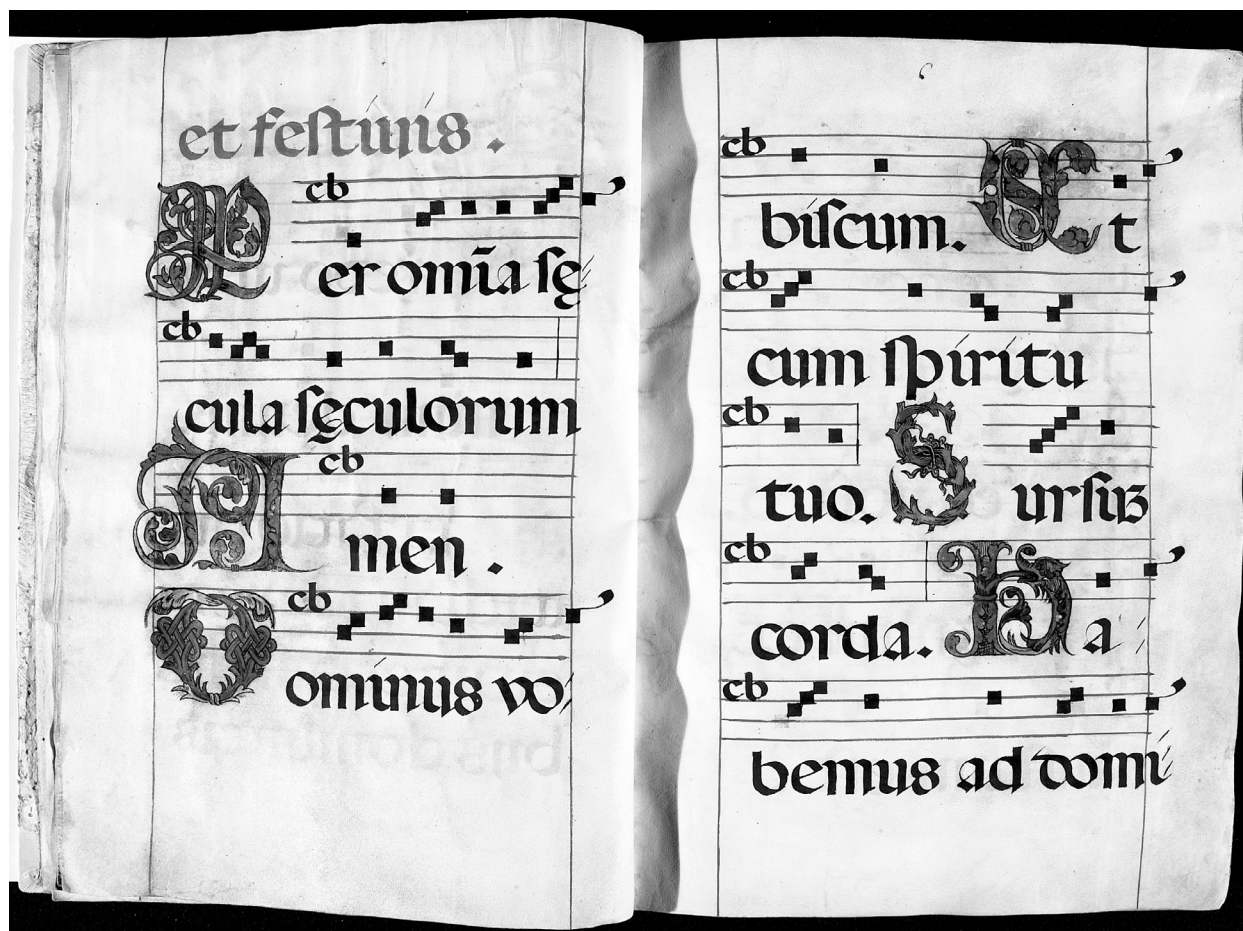 et festivis.
Per omīa sę
cula sęculorum
Amen.
Dominus vo
biscum. Et
cum spiritu
tuo. Sursuʒ
corda. Ha
bemus ad domi